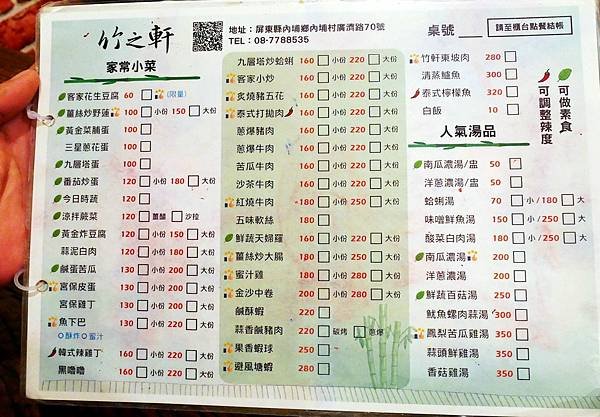 竹之軒
地址：屏東縣內埔鄉內埔村廣濟路70號
TEL：08-7788535
桌號
請至櫃台點餐結帳
家常小菜
客家花生豆腐 60 (限量)
薑絲炒野蓮 100 小份 150 大份
黃金菜脯蛋 100
三星蔥花蛋 100
九層塔蛋 100
番茄炒蛋 120 小份 180 大份
今日時蔬 120
涼拌蕨菜 120 薑醋 沙拉
黃金炸豆腐 120 小份 150 大份
蒜泥白肉 120 小份 180 大份
鹹蛋苦瓜 130 小份 200 大份
宮保皮蛋 130 小份 200 大份
宮保雞丁 130 小份 200 大份
魚下巴 130 小份 200 大份
酥炸 蜜汁
韓式辣雞丁 160 小份 220 大份
黑嚕嚕 160 小份 220 大份
九層塔炒蛤蜊 160 小份 220 大份
客家小炒 160 小份 220 大份
炙燒豬五花 160 小份 220 大份
泰式打拋肉 160 小份 220 大份
蔥爆豬肉 160 小份 220 大份
蔥爆牛肉 160 小份 220 大份
苦瓜牛肉 160 小份 220 大份
沙茶牛肉 160 小份 220 大份
紅燒牛肉 180 小份 250 大份
五味軟絲 180
鮮蔬天婦羅 160 小份 220 大份
薑絲炒大腸 180 小份 250 大份
蜜汁雞 200 小份 280 大份
金沙中卷 200 小份 280 大份
鹹酥蝦 220
蒜香鹹豬肉 220 碳烤 蔥爆
果香蝦球 250
避風塘蝦 280
竹軒東坡肉 280
清蒸鱸魚 300
泰式檸檬魚 320
白飯 10
可調整辣度
可做素食
人氣湯品
南瓜濃湯/盅 50
洋蔥濃湯/盅 50
蛤蜊湯 70 小/180 大
味噌鮮魚湯 150 小/250 大
酸菜白肉湯 180 小/250 大
南瓜濃湯 200
洋蔥濃湯 200
鮮蔬百菇湯 250
魷魚螺肉蒜湯 300
鳳梨苦瓜雞湯 350
蒜頭鮮雞湯 350
香菇雞湯 350